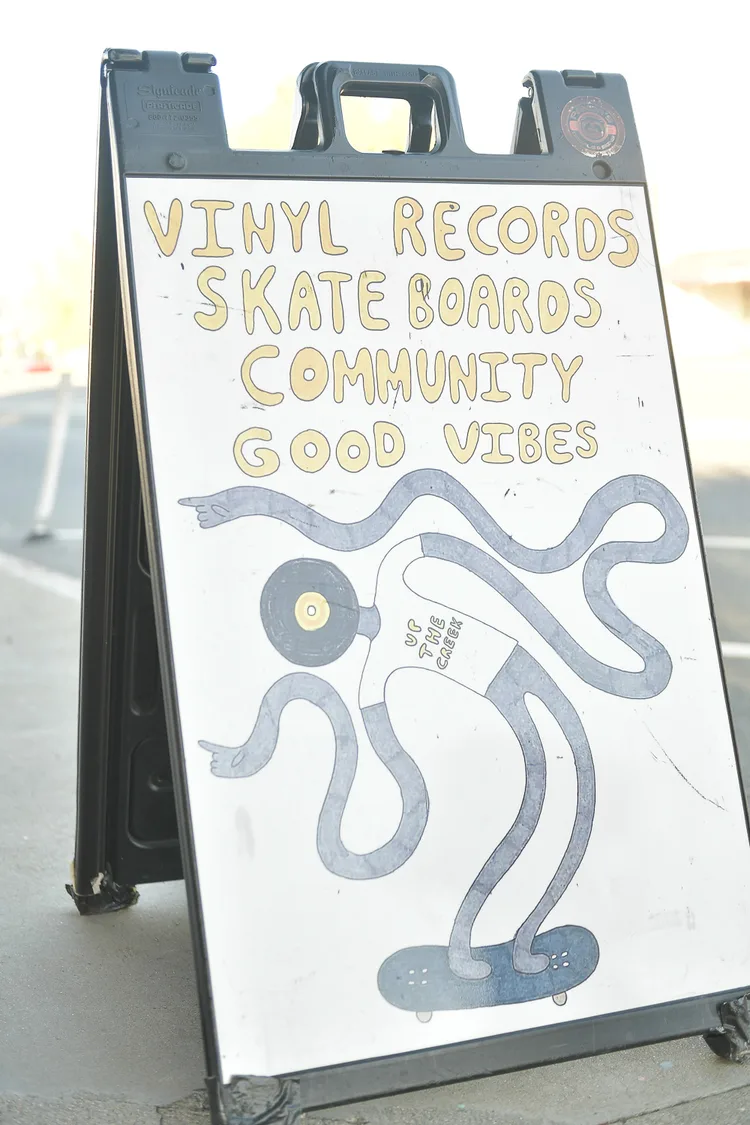 Signicade
VINYL RECORDS
SKATE BOARDS
COMMUNITY
GOOD VIBES
UP
THE
CREEK